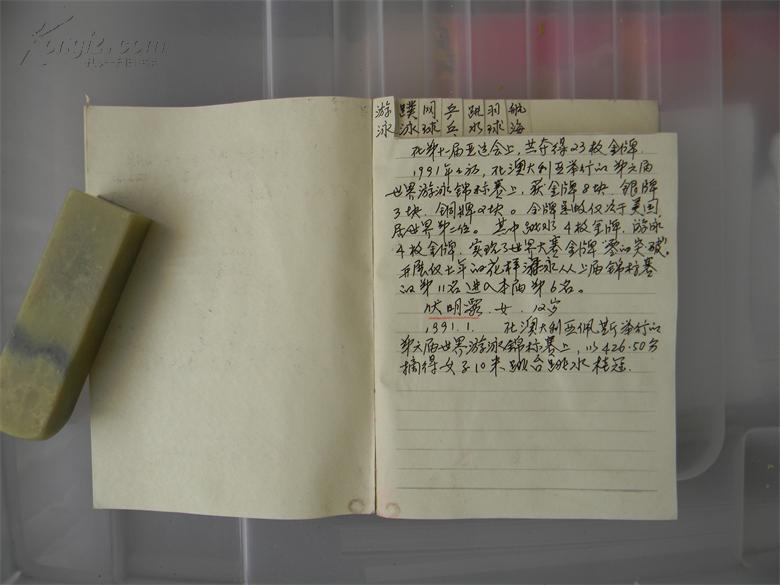 Kongfz.com
游泳 蹼泳 网球 乒乓 跳水 羽球 航海
在第十一届亚运会上,共夺得23枚金牌.
1991年1月,在澳大利亚举行的第六届
世界游泳锦标赛上,获金牌8块.银牌
3块.铜牌2块。金牌总数仅次于美国,
居世界第二位。其中跳水4枚金牌.游泳
4枚金牌.实现了世界大赛金牌"零的突破".
开展仅七年的花样游泳从上届锦标赛
的第11名进入本届第6名。
伏明霞.女.12岁
1991.1. 在澳大利亚佩斯举行的
第六届世界游泳锦标赛上,以426.50分
摘得女子10米跳台跳水桂冠.